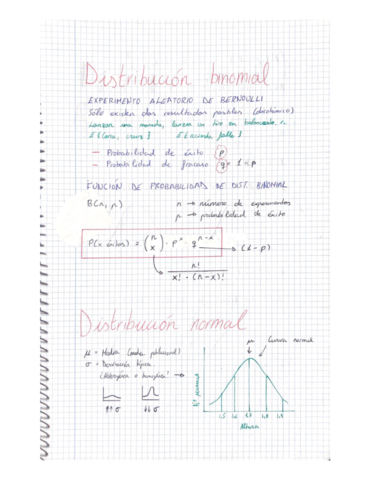 Distribución binomial
EXPERIMENTO ALEATORIO DE BERNOULLI
Sólo existen dos resultados posibles (dicotómico)
Lanzar una moneda, lanzar un tiro en baloncesto...
E {cara, cruz} E {acierto, fallo}
— Probabilidad de éxito p
— Probabilidad de fracaso q = 1 - p
FUNCIÓN DE PROBABILIDAD DE DIST. BINOMIAL
B(n, p) n → número de experimentos
p → probabilidad de éxito
P(x éxitos) = (n x) · p^x · q^(n-x) → (1 - p)
n! / x! · (n-x)!
Distribución normal
μ = Media (media poblacional)
σ = Desviación típica
μ Curva normal
↑↑ σ ↓↓ σ
Nº personas
1,5 1,6 1,7 1,8 1,9
Altura